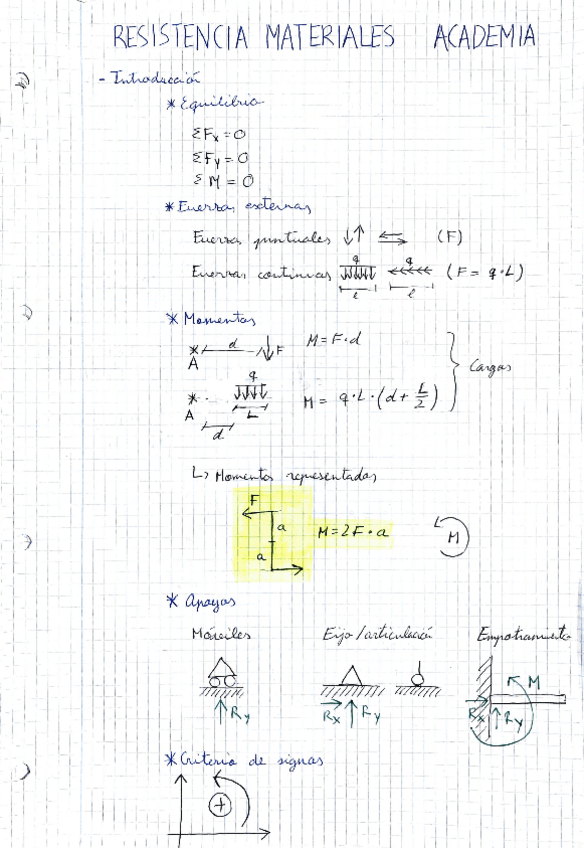 RESISTENCIA MATERIALES ACADEMIA
- Introducción
* Equilibrio
ΣFx = 0
ΣFy = 0
ΣM = 0
* Fuerzas externas
Fuerzas puntuales ↓↑ ⇆ (F)
q q
Fuerzas continuas (F = q·L)
l l
* Momentos
d F M = F·d
A
q
M = q·L·(d + L/2)
A L
d
Cargas
↳ Momentos representados
F
a M = 2F·a M
a
* Apoyos
Móviles Fijo/articulación Empotramiento
M
Ry Rx Ry Rx Ry
* Criterio de signos
+